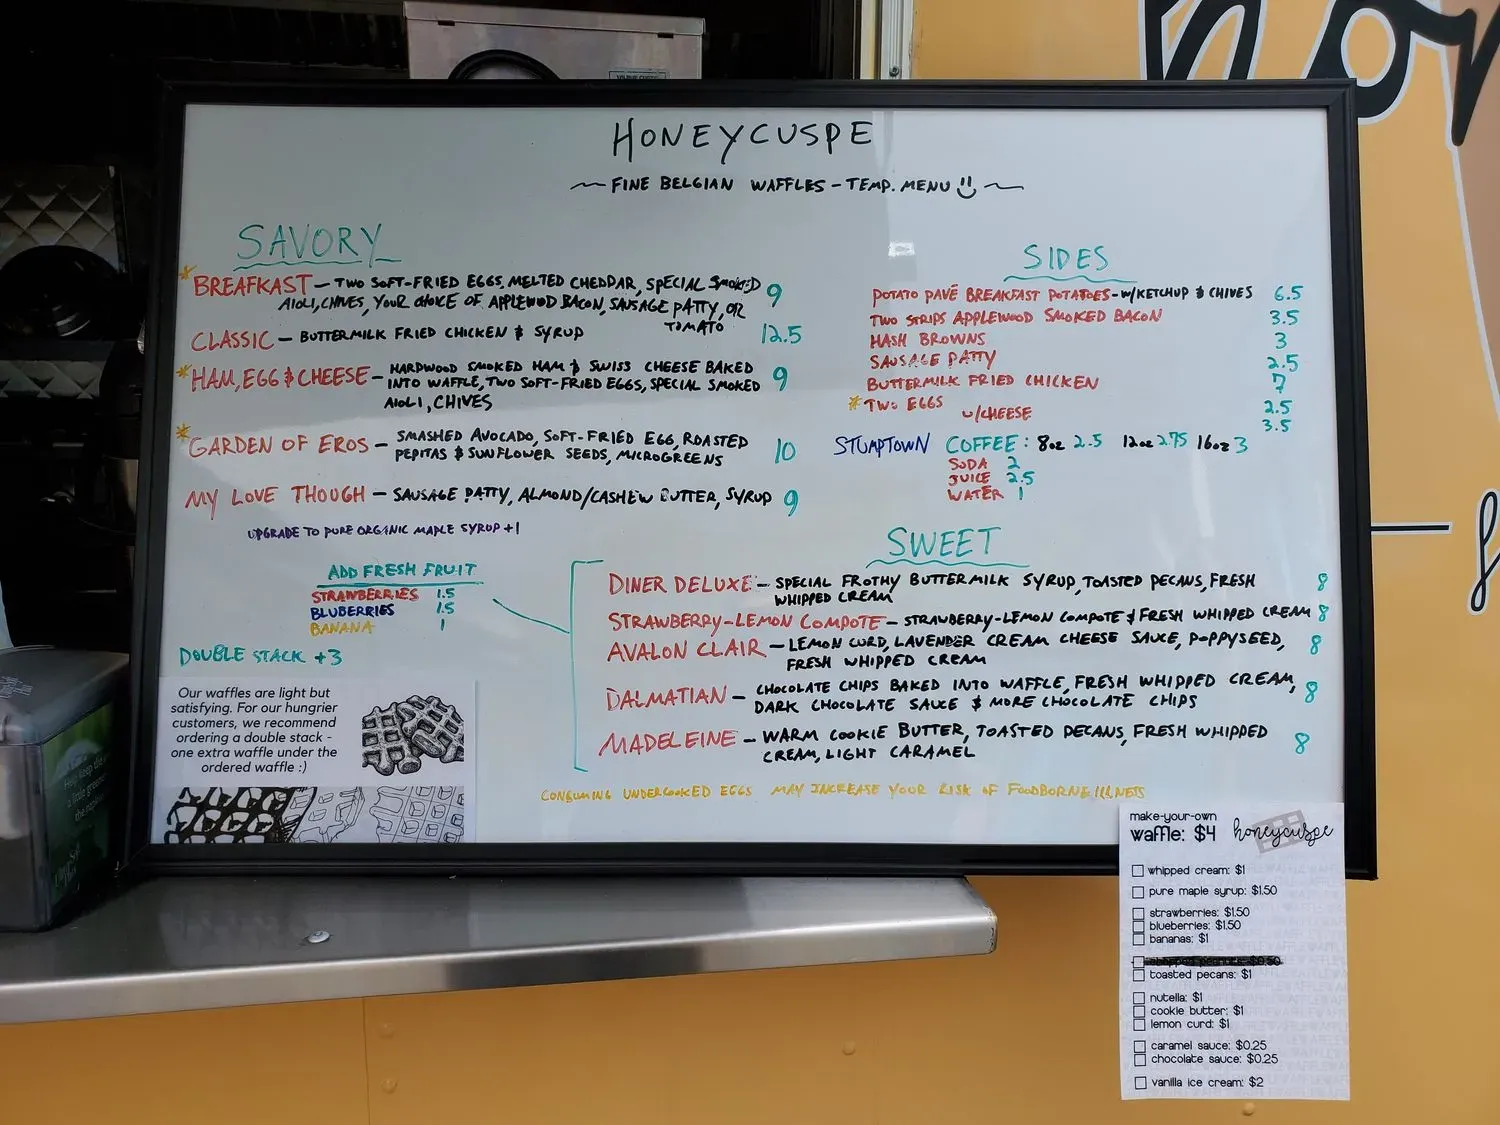 HONEYCUSPE
FINE BELGIAN WAFFLES - TEMP. MENU
SAVORY
*BREAFKAST - TWO SOFT-FRIED EGGS, MELTED CHEDDAR, SPECIAL SMOKED
AIOLI, CHIVES, YOUR CHOICE OF APPLEWOOD BACON, SAUSAGE PATTY, OR
TOMATO
9
CLASSIC - BUTTERMILK FRIED CHICKEN & SYRUP 12.5
*HAM, EGG & CHEESE - HARDWOOD SMOKED HAM & SWISS CHEESE BAKED
INTO WAFFLE, TWO SOFT-FRIED EGGS, SPECIAL SMOKED 9
AIOLI, CHIVES
*GARDEN OF EROS - SMASHED AVOCADO, SOFT-FRIED EGG, ROASTED
PEPITAS & SUNFLOWER SEEDS, MICROGREENS 10
MY LOVE THOUGH - SAUSAGE PATTY, ALMOND/CASHEW BUTTER, SYRUP 9
UPGRADE TO PURE ORGANIC MAPLE SYRUP +1
ADD FRESH FRUIT
STRAWBERRIES 1.5
BLUBERRIES 1.5
BANANA 1
DOUBLE STACK +3
Our waffles are light but
satisfying. For our hungrier
customers, we recommend
ordering a double stack -
one extra waffle under the
ordered waffle :)
SIDES
POTATO PAVÉ BREAKFAST POTATOES - W/KETCHUP & CHIVES 6.5
TWO STRIPS APPLEWOOD SMOKED BACON 3.5
HASH BROWNS 3
SAUSAGE PATTY 2.5
BUTTERMILK FRIED CHICKEN 7
*TWO EGGS 2.5
W/CHEESE 3.5
STUMPTOWN COFFEE: 8oz 2.5 12oz 2.75 16oz 3
SODA 2
JUICE 2.5
WATER 1
SWEET
DINER DELUXE - SPECIAL FROTHY BUTTERMILK SYRUP, TOASTED PECANS, FRESH 8
WHIPPED CREAM
STRAWBERRY-LEMON COMPOTE - STRAWBERRY-LEMON COMPOTE & FRESH WHIPPED CREAM 8
AVALON CLAIR - LEMON CURD, LAVENDER CREAM CHEESE SAUCE, POPPYSEED, 8
FRESH WHIPPED CREAM
DALMATIAN - CHOCOLATE CHIPS BAKED INTO WAFFLE, FRESH WHIPPED CREAM, 8
DARK CHOCOLATE SAUCE & MORE CHOCOLATE CHIPS
MADELEINE - WARM COOKIE BUTTER, TOASTED PECANS, FRESH WHIPPED 8
CREAM, LIGHT CARAMEL
CONSUMING UNDERCOOKED EGGS MAY INCREASE YOUR RISK OF FOODBORNE ILLNESS
make-your-own
waffle: $4 honeycuspe
whipped cream: $1
pure maple syrup: $1.50
strawberries: $1.50
blueberries: $1.50
bananas: $1
toasted pecans: $1
nutella: $1
cookie butter: $1
lemon curd: $1
caramel sauce: $0.25
chocolate sauce: $0.25
vanilla ice cream: $2